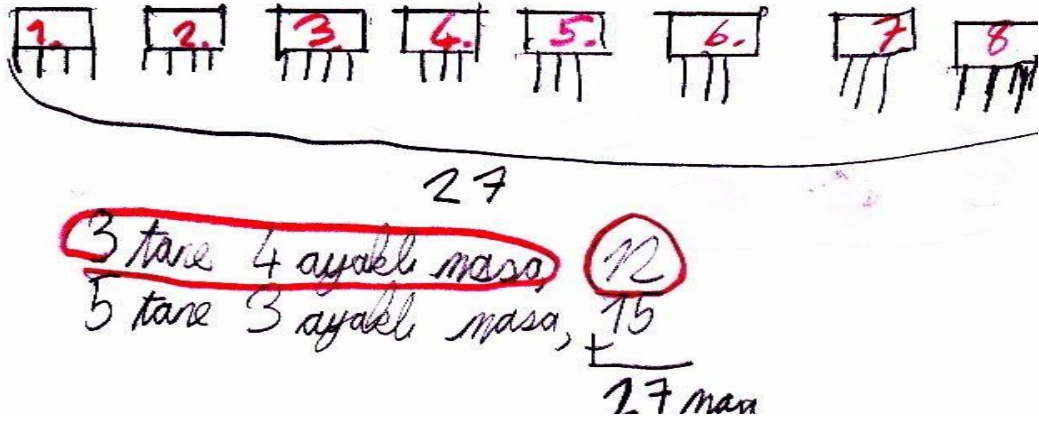 1. 2. 3. 4. 5. 6. 7 8
27
3 tane 4 ayaklı masa, 12
5 tane 3 ayaklı masa, 15
+
27 masa